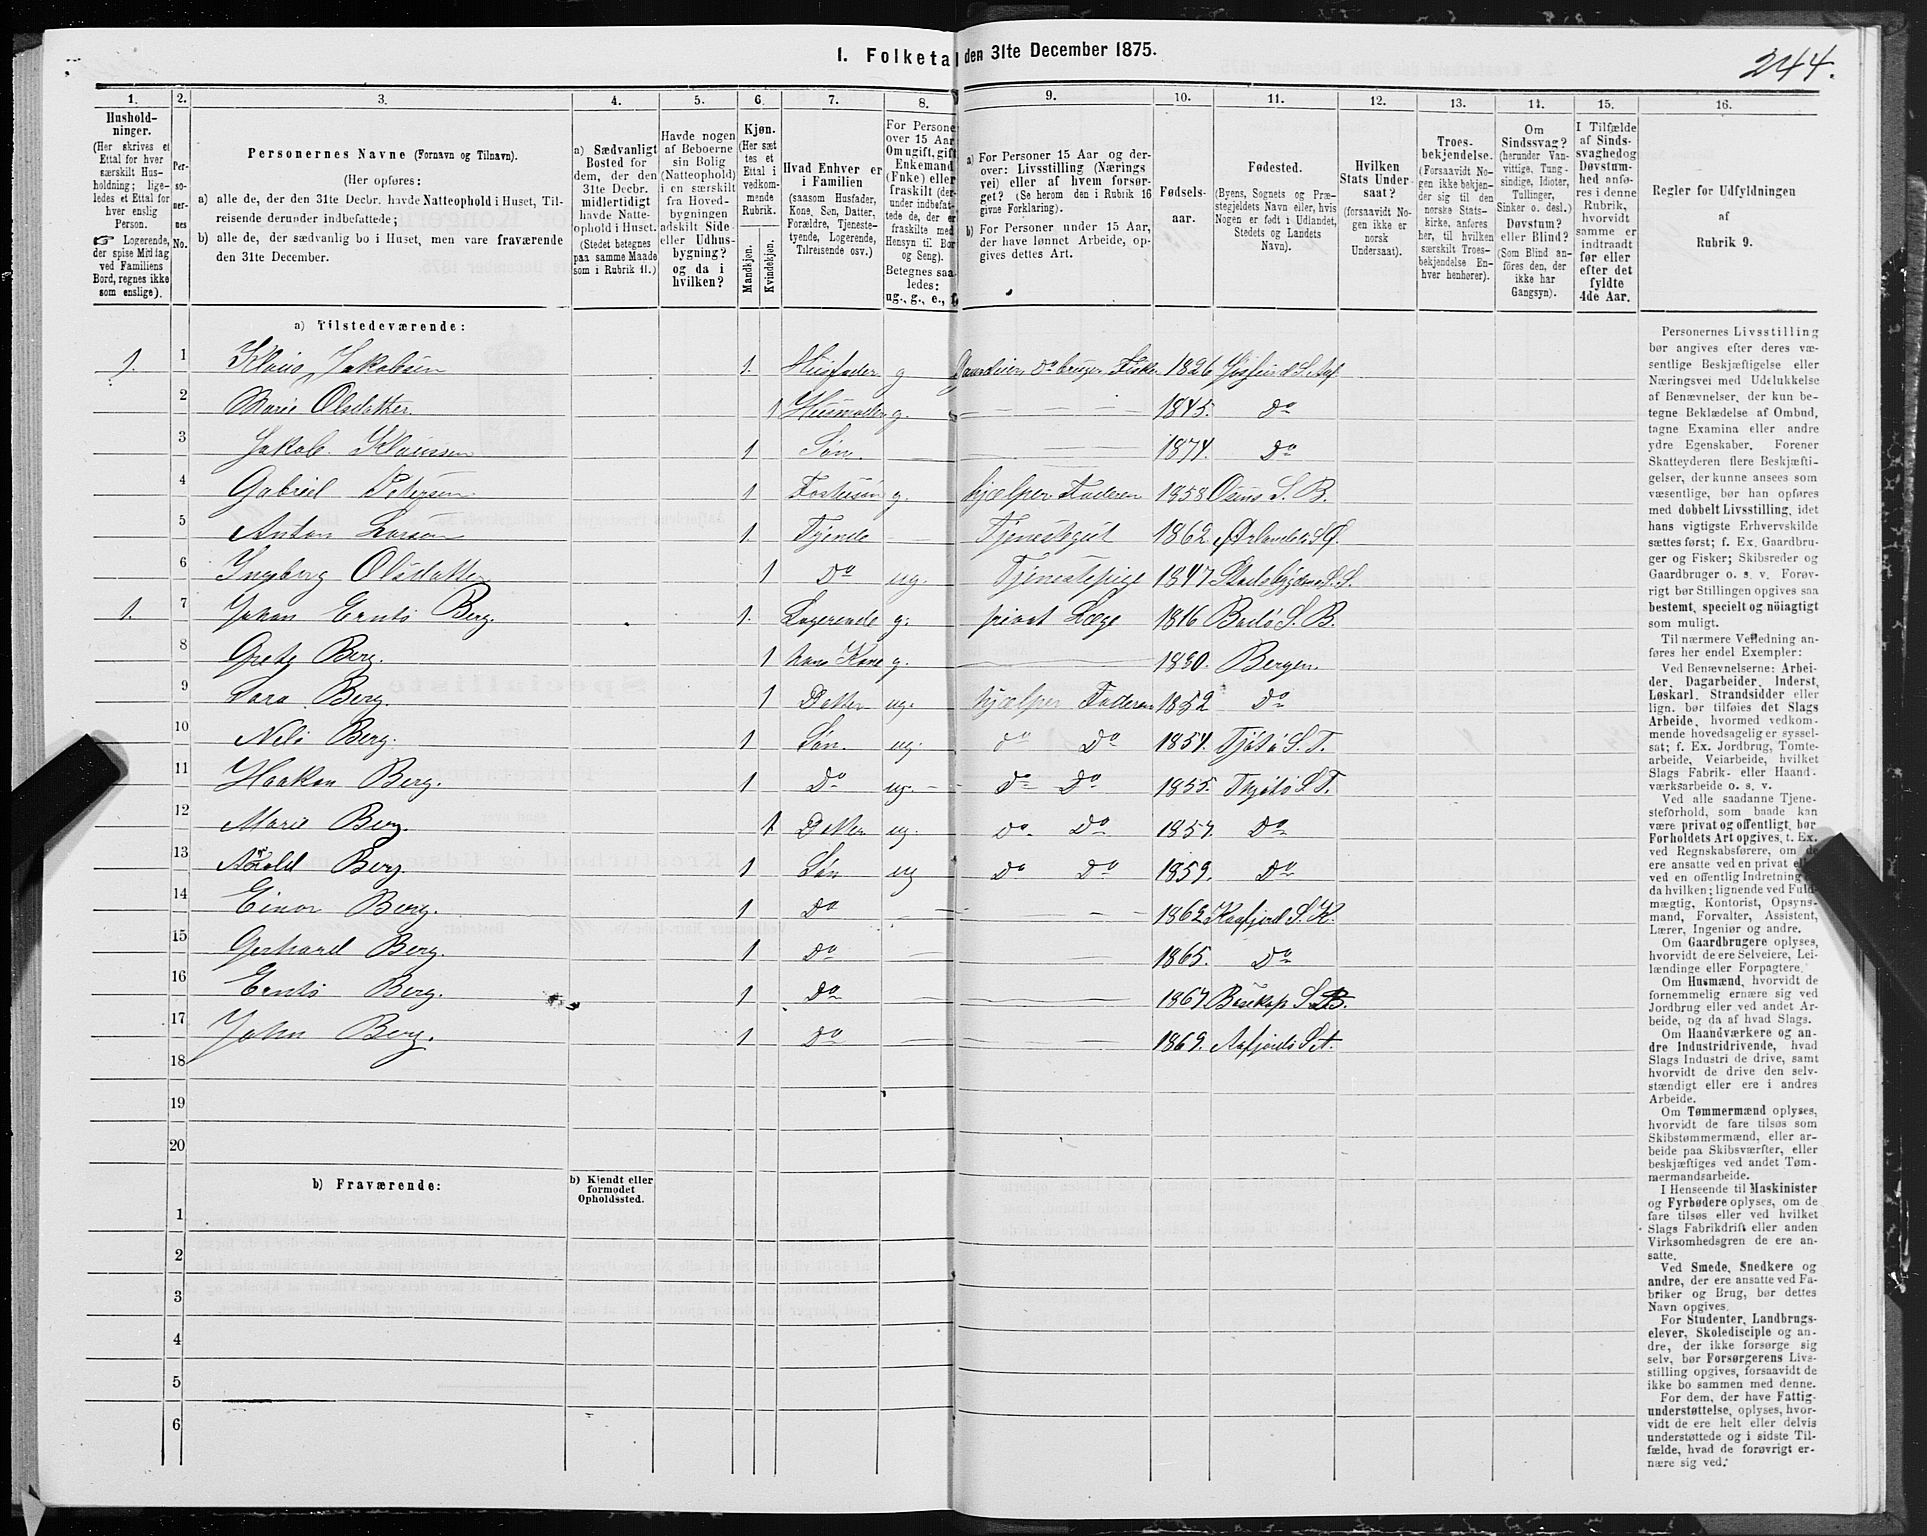 1. Folketal den 31te December 1875.
244.
1.
2.
3.
4.
5.
6.
7.
8.
9.
10.
11.
12.
13.
14.
15.
16.
Hushold-
ninger.
(Her skrives et
Ettal for hver
særskilt Hus-
holdning; lige-
ledes et Ettal for
hver enslig
Person.
☞ Logerende,
der spise Middag
ved Familiens
Bord, regnes ikke
som enslige).
Per-
so-
ner-
nes
No.
Personernes Navne (Fornavn og Tilnavn).
(Her opføres:
a) alle de, der den 31te Decbr. havde Natteophold i Huset, Til-
reisende derunder indbefattede;
b) alle de, der sædvanlig bo i Huset, men vare fraværende
den 31te December.
a) Sædvanligt
Bosted for
dem, der den
31te Decbr.
midlertidigt
havde Natte-
ophold i Huset.
(Stedet betegnes
paa samme Maade
som i Rubrik 11.)
Havde nogen
af Beboerne
sin Bolig
(Natteophold)
i en særskilt
fra Hoved-
bygningen
adskilt Side-
eller Udhus-
bygning?
og da i
hvilken?
Kjøn.
(Her sæt-
tes et
Ettal i
vedkom-
mende
Rubrik.
Mandkjøn.
Kvindekjøn.
Hvad Enhver er
i Familien
(saasom Husfader,
Kone, Søn, Datter,
Forældre, Tjeneste-
tyende, Logerende,
Tilreisende osv.)
For Persone
over 15 Aar
Om ugift, gift
Enkemand
(Enke) eller
fraskilt (der-
under indbefat-
tede de, der er
fraskilte med
Hensyn til Bor
og Seng).
Betegnes saa-
ledes:
ug., g., e., f.
a) For Personer 15 Aar og der-
over: Livsstilling (Nærings
vei) eller af hvem forsør-
get? (Se herom den i Rubrik 16
givne Forklaring).
b) For Personer under 15 Aar,
der have lønnet Arbeide, op-
gives dettes Art.
Fødsels-
aar.
Fødested.
(Byens, Sognets og Præ-
stegjeldets Navn eller, hvis
Nogen er født i Udlandet,
Stedets og Landets
Navn).
Hvilken
Stats Under
saat?
(forsaavidt No-
gen ikke er
norsk
Undersaat).
Troes-
bekjendelse.
(Forsaavidt No-
gen ikke bekjen-
der sig til den
norske Stats-
kirke, anføres
her, til hvilken
særskilt Troes-
bekjendelse En-
hver henhører).
Om
Sindssvag?
(herunder Van-
vittige, Tung-
sindige, Idioter,
Tullinger,
Sinker o. desl.)
Døvstum?
eller Blind?
(Som Blind an-
føres den, der
ikke har
Gangsyn).
I Tilfælde
af Sinds-
svaghed og
Døvstum-
hed anfø-
res i denne
Rubrik,
hvorvidt
samme er
indtraadt
før eller
efter det
fyldte
4de Aar.
Regler for Udfyldningen
af
Rubrik 9.
a) Tilstedeværende:
1. 1 Klaus Jakobsen 1. Husfader g Gaardeier Do bruger Fisker 1826
2 Marie Olsdatter 1 Husmoder g. 1845. Do
3 Jakob Klaussen 1 Søn. 1874. Do
4 Gabriel Petersen 1 Fostersøn g. hjælper Faderen 1858
5 Anton Larsen 1. Tjende Tjenestegut 1862
6 Ingeberg Olsdatter 1 Do ug. Tjenestepige 1847 Stadsbygdens S. S.
1. 7 Johan Ernts Berg. 1. Logerende g. privat Læge 1816 Bodø S. B.
8 Grete Berg. 1 hans Kone g. 1830. Bergen.
9 Sara Berg. 1 Datter ug. hjælper Faderen 1852 Do
10 Nels Berg. 1 Søn. ug. do Do 1854. Tjøtø S. T.
11 Haakon Berg. 1 Do ug. Do Do 1855. Thjøtø S. T.
12 Marie Berg. 1 Datter ug. Do. Do 1857. Do
13 Arold Berg. 1 Søn ug Do Do 1859. Do
14 Einar Berg. 1 Do 1862 Kaafjord S. K.
15 Gerhard Berg. 1 Do 1865. Do
16 Ernts Berg. 1 Do 1867 Bosekop S. B.
17 John Berg. 1 Do 1869. Aafjords S. A.
18
19
20
b) Fraværende:
b) Kjendt eller
formodet
Opholdssted.
1
2
3
4
5
6
Personernes Livsstilling
bør angives efter deres væ-
sentlige Beskjæftigelse eller
Næringsvei med Udelukkelse
af Benævnelser, der kun be-
tegne Beklædelse af Ombud,
tagne Examina eller andre
ydre Egenskaber. Forener
Skatteyderen flere Beskjæfti-
gelser, der kunne ansees som
væsentlige, bør han opføres
med dobbelt Livsstilling, idet
hans vigtigste Erhvervskilde
sættes først; f. Ex. Gaardbru-
ger og Fisker; Skibsreder og
Gaardbruger o. s. v. Forøv-
rigt bør Stillingen opgives saa
bestemt, specielt og nöiagtigt
som muligt.
Til nærmere Veiledning an-
føres her endel Exempler:
Ved Benævnelserne: Arbei-
der, Dagarbeider, Inderst,
Løskarl, Strandsidder eller
lign. bør tilføies det Slags
Arbeide, hvormed vedkom-
mende hovedsagelig er syssel-
sat; f. Ex. Jordbrug, Tomte-
arbeide, Veiarbeide, hvilket
Slags Fabrik- eller Haand-
værksarbeide o. s. v.
Ved alle saadanne Tjene-
steforhold, som baade kan
være privat og offentligt, bør
Forholdets Art opgives, t. Ex.
ved Regnskabsførere, om de
ere ansatte ved en privat eller
ved en offentlig Indretning og
da hvilken; lignende ved Fuld-
mægtig, Kontorist, Opsyns-
mand, Forvalter, Assistent,
Lærer, Ingeniør og andre.
Om Gaardbrugere oplyses,
hvorvidt de ere Selveiere, Lei-
lændinge eller Forpagtere.
Om Husmænd, hvorvidt de
fornemmelig ernære sig ved
Jordbrug eller ved andet Ar-
beide, og da af hvad Slags.
Om Haandværkere og an-
dre Industridrivende, hvad
Slags Industri de drive, samt
hvorvidt de drive den selv-
stændigt eller ere i andres
Arbeide.
Om Tømmermænd oplyses,
hvorvidt de fare tilsøs som
Skibstømmermænd, eller ar-
beide paa Skibsværfter, eller
beskjæftiges ved andet Tøm-
mermandsarbeide.
I Henseende til Maskinister
og Fyrbødere oplyses, om de
fare tilsøs eller ved hvilket
Slags Fabrikdrift eller anden
Virksomhedsgren de ere an-
satte.
Ved Smede, Snedkere og
andre, der ere ansatte ved Fa-
briker og Brug, bør dettes
Navn opgives.
For Studenter, Landbrugs-
elever, Skoledisciple og an-
dre, der ikke forsørge sig
selv, bør Forsørgerens Livs-
stilling opgives, forsaavidt de
ikke bo sammen med denne.
For dem, der have Fattig-
understøttelse, oplyses, hvor-
vidt de ere helt eller delvis
understøttede og i sidste Til-
fælde, hvad de forøvrigt er-
nære sig ved.